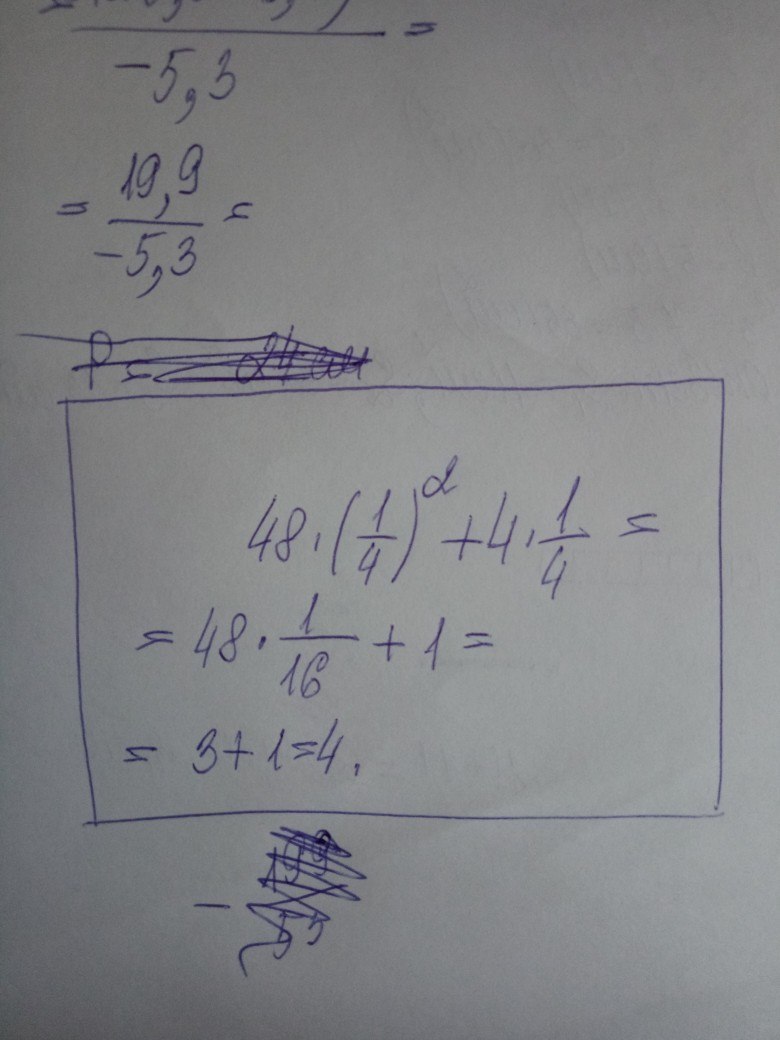 =
-5,3
= 19,9 / -5,3 =
P = 24 см
48 · (1/4)² + 4 · 1/4 =
= 48 · 1/16 + 1 =
= 3 + 1 = 4.
-